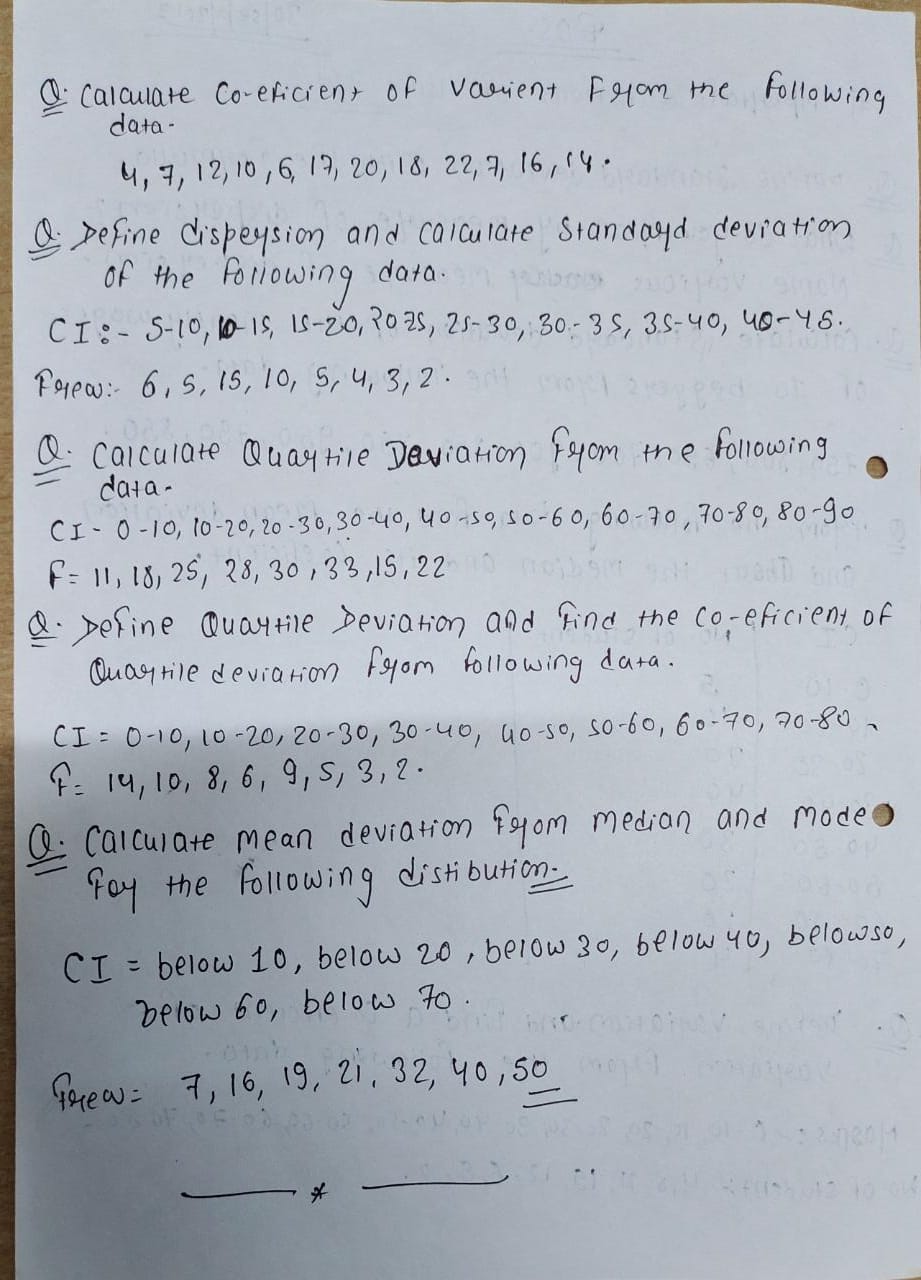 Q. Calculate Co-eficient of varient From the following
data-
4, 7, 12, 10, 6, 17, 20, 18, 22, 7, 16, 14.
Q. Define dispersion and calculate Standard deviation
of the following data.
CI:- 5-10, 10-15, 15-20, 20 25, 25-30, 30-35, 35-40, 40-45.
Freq:- 6, 5, 15, 10, 5, 4, 3, 2.
Q. Calculate Quartile Deviation from the following
data-
CI- 0-10, 10-20, 20-30, 30-40, 40-50, 50-60, 60-70, 70-80, 80-90
F= 11, 18, 25, 28, 30, 33, 15, 22
Q. Define Quartile Deviation and find the co-eficient of
Quartile deviation from following data.
CI = 0-10, 10-20, 20-30, 30-40, 40-50, 50-60, 60-70, 70-80
F= 14, 10, 8, 6, 9, 5, 3, 2.
Q. Calculate mean deviation from median and mode
for the following distibution-
CI = below 10, below 20, below 30, below 40, below50,
below 60, below 70.
Freq= 7, 16, 19, 21, 32, 40, 50